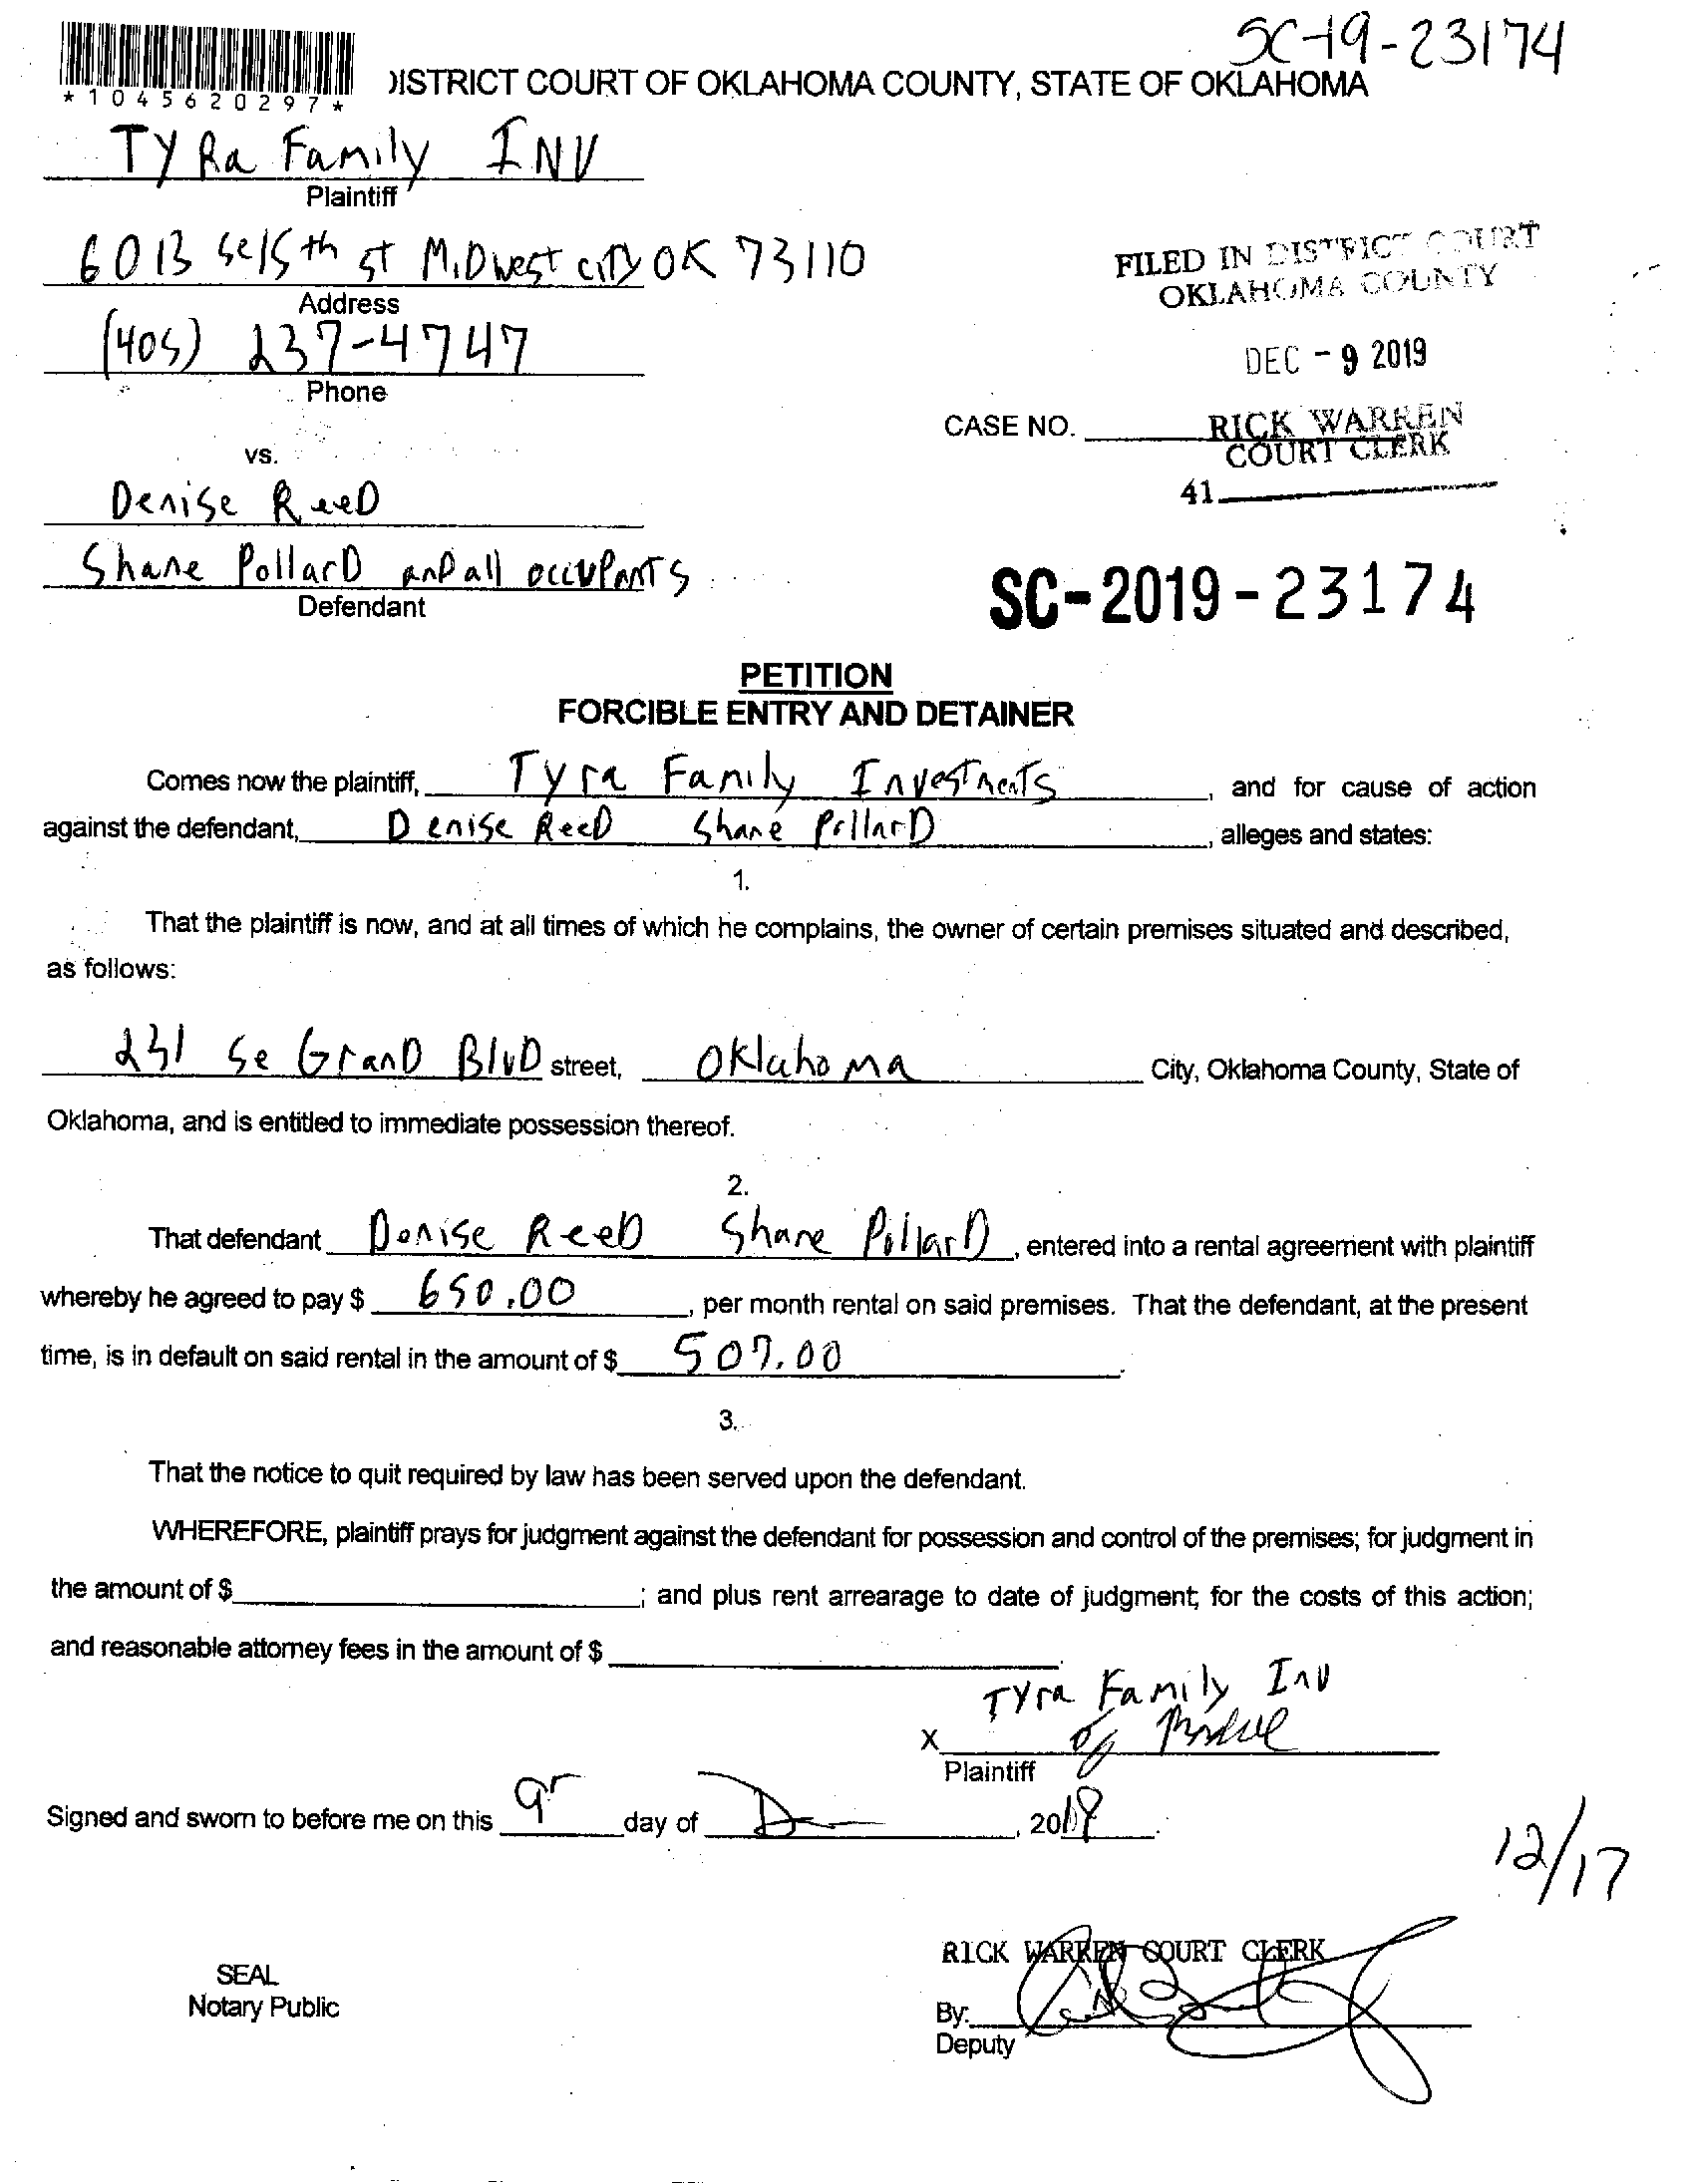 SC-19-23174
*1045620297*
DISTRICT COURT OF OKLAHOMA COUNTY, STATE OF OKLAHOMA
TyRa Family INV
Plaintiff
6013 se 15th ST MiDwest ciTy OK 73110
Address
FILED IN DISTRICT COURT
OKLAHOMA COUNTY
(405) 237-4747
Phone
DEC - 9 2019
CASE NO.
RICK WARREN
COURT CLERK
vs.
41
Denise ReeD
Shane PollarD anD all occuPanTs
Defendant
SC-2019-23174
PETITION
FORCIBLE ENTRY AND DETAINER
Comes now the plaintiff, Tyra Family InvesTmenTs, and for cause of action
against the defendant, Denise ReeD Shane PollarD, alleges and states:
1.
That the plaintiff is now, and at all times of which he complains, the owner of certain premises situated and described,
as follows:
231 Se GranD BlvD street, Oklahoma City, Oklahoma County, State of
Oklahoma, and is entitled to immediate possession thereof.
2.
That defendant Denise ReeD Shane PollarD, entered into a rental agreement with plaintiff
whereby he agreed to pay $ 650.00, per month rental on said premises. That the defendant, at the present
time, is in default on said rental in the amount of $ 507.00.
3.
That the notice to quit required by law has been served upon the defendant.
WHEREFORE, plaintiff prays for judgment against the defendant for possession and control of the premises; for judgment in
the amount of $; and plus rent arrearage to date of judgment; for the costs of this action;
and reasonable attorney fees in the amount of $.
Tyra Family Inv
X
Plaintiff
Signed and sworn to before me on this 9 day of D, 2019.
12/17
RICK WARREN COURT CLERK
SEAL
Notary Public
By:
Deputy